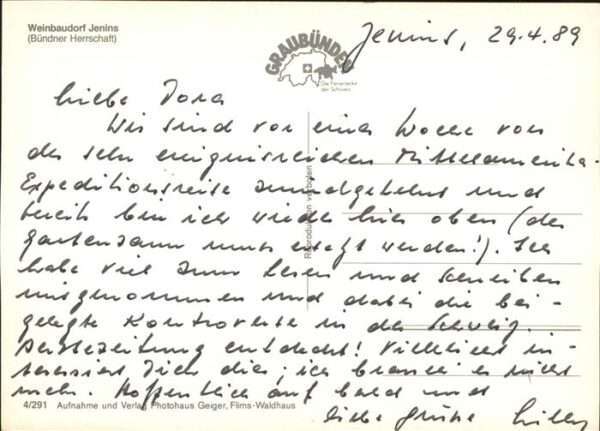 Weinbaudorf Jenins
(Bündner Herrschaft)
GRAUBÜNDEN
Die Ferienecke
der Schweiz
Jenins, 29.4.89
Liebe Dora
Wir sind vor einer Woche von
der sehr ereignisreichen Mittelamerika-
Expeditionsreise zurückgekehrt und
bereits bin ich wieder hier oben (der
Gartenzaun muss ersetzt werden!). Ich
habe viel zum Lesen und Schreiben
mitgenommen und dabei die bei-
gelegte Kontroverse in der Schweiz.
Aerztezeitung entdeckt! Vielleicht in-
teressiert Dich dies; ich brauche es nicht
mehr. Hoffentlich auf bald und
liebe Grüsse Willy
Reproduktion verboten
4/291 Aufnahme und Verlag Photohaus Geiger, Flims-Waldhaus